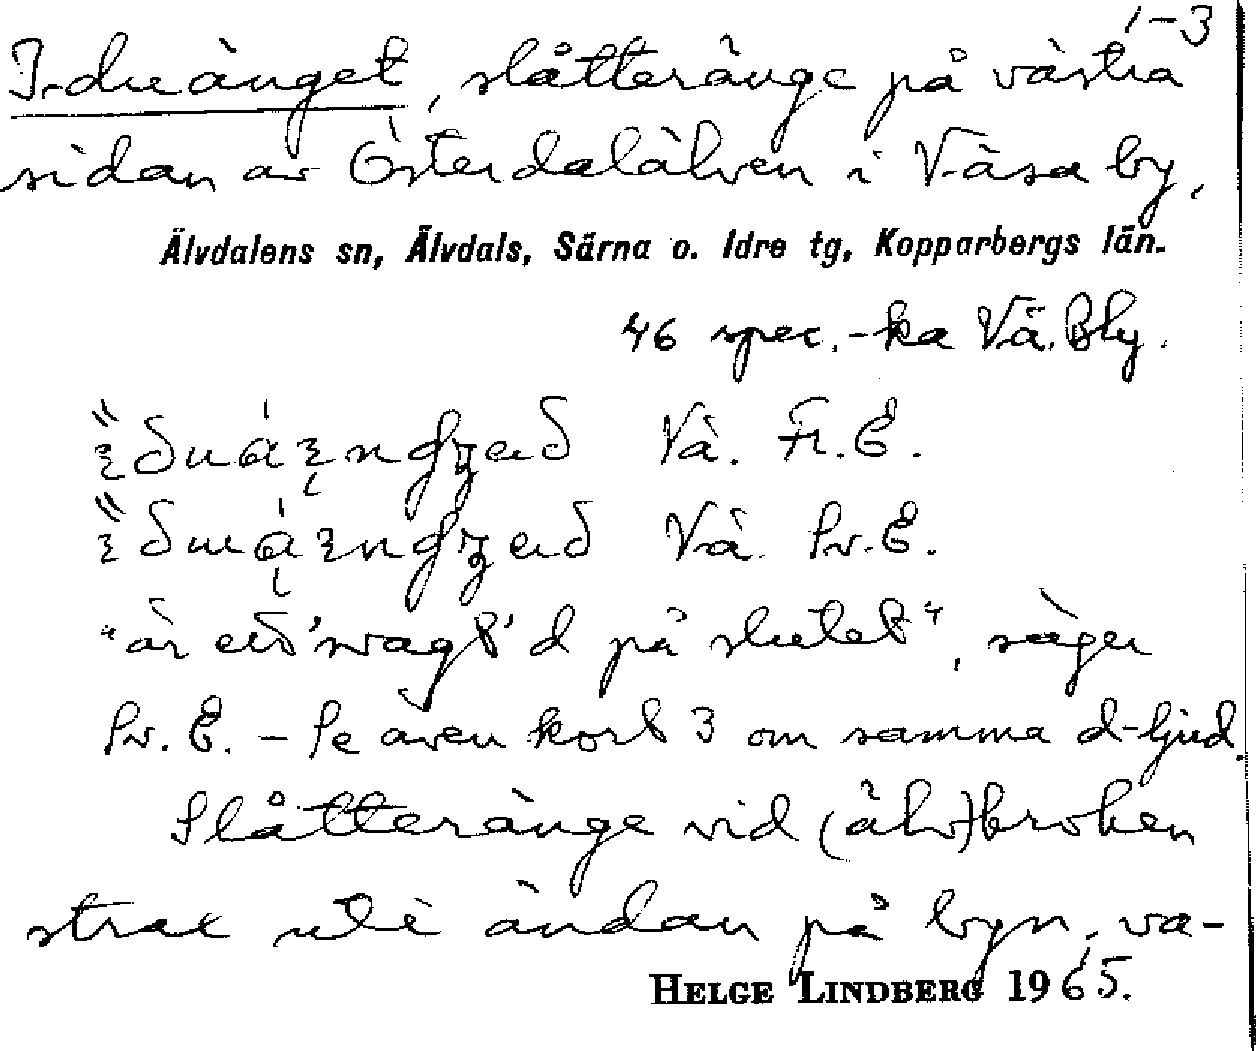 1-3
Idreänget, slåtteränge på västra
sidan av Österdalälven i Väsa by,
Älvdalens sn, Älvdals, Särna o. Idre tg, Kopparbergs län.
46 spec.-ka Vä. Bly.
Vä. Fr. E.
Vä. Sv. E.
"är eit 'svagt' d på slutet", säger
Sv. E. - Se även kort 3 om samma d-ljud.
Slåtteränge vid (älv)broken
strax uti ändan på byn, va-
HELGE LINDBERG 1965.